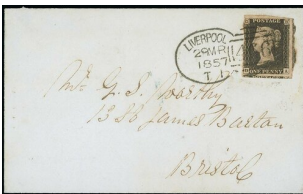 LIVERPOOL
29 MR
1857
T
POSTAGE
ONE PENNY
Mr. G. S. Worthy
13 St James Barton
Bristol